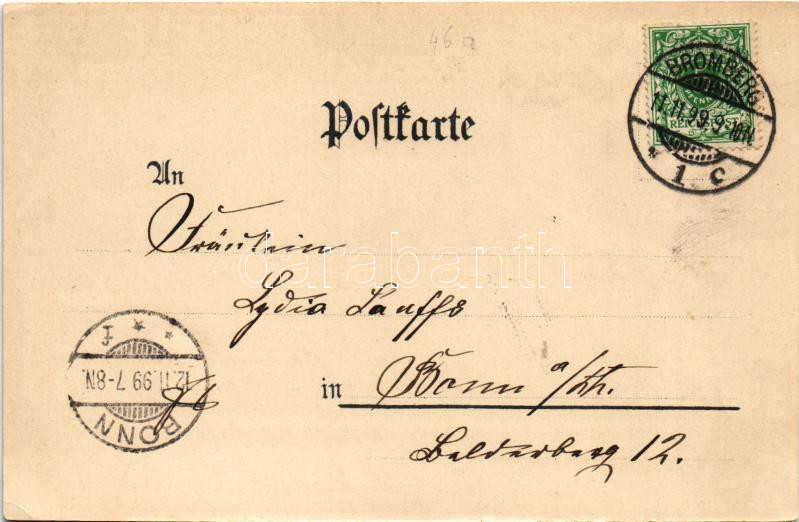 46a
BROMBERG
11.11.99. 9-10N.
1 c
REICHSPOST
Postkarte
An
Fräulein
darabanth
Lydia Lauffs
in Bonn a/Rh.
Belderberg 12.
BONN
12.11.99 7-8N.
* * f